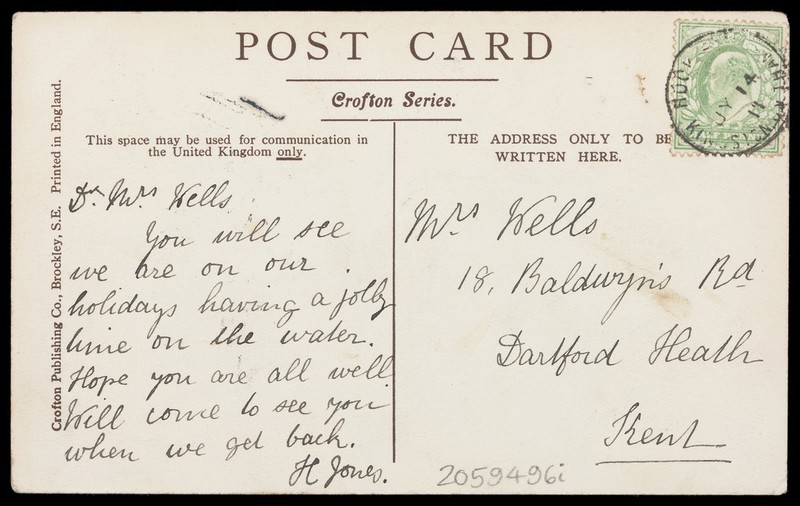 POST CARD
Crofton Series.
This space may be used for communication in
the United Kingdom only.
THE ADDRESS ONLY TO BE
WRITTEN HERE.
Crofton Publishing Co., Brockley, S.E. Printed in England.
Dr. Mrs Wells
You will see
we are on our
holidays having a jolly
time on the water.
Hope you are all well
Will come to see you
when we get back.
H Jones.
Mrs Wells
18, Baldwyn's Rd
Dartford Heath
Kent
JY 14
11
KINGSTON
2059496i